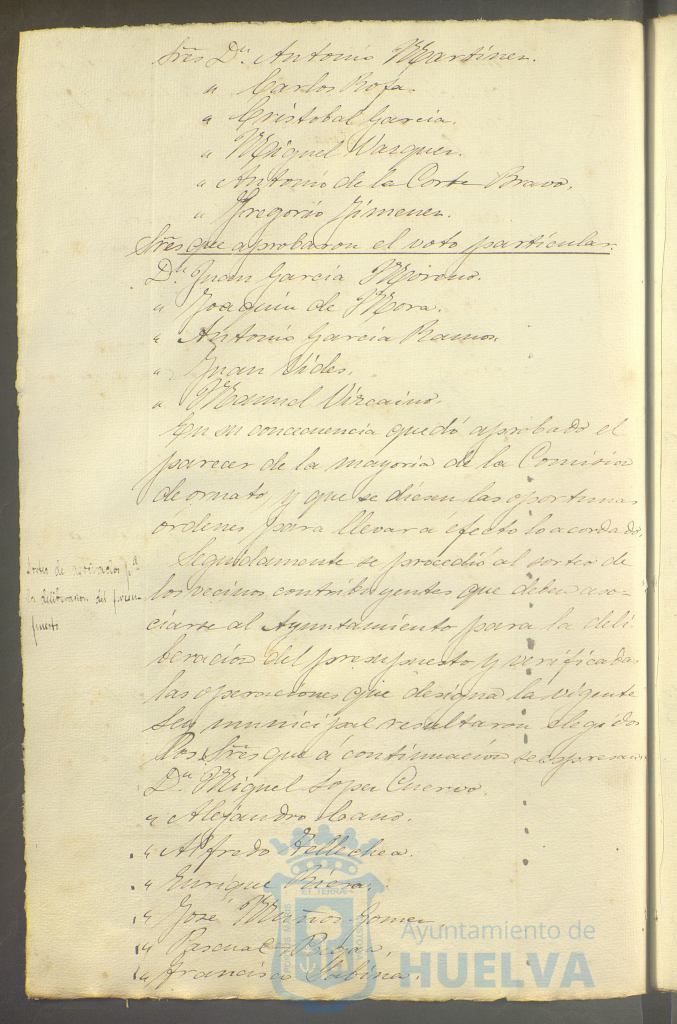 Sres Dn. Antonio Martinez.
" Carlos Rofa.
" Cristobal Garcia.
" Miguel Vazquez.
" Antonio de la Corte Bravo.
" Gregorio Jimenez.
Sres que aprobaron el voto particular.
Dn Juan Garcia Moreno.
" Joaquin de Mora.
" Antonio Garcia Ramos.
" Juan Vides.
" Manuel Vizcaino.
En su concecuencia quedó aprobado el
parecer de la mayoria de la Comision
de ornato, y que se diesen las oportunas
ordenes para llevar á efecto lo acordado.
Seguidamente se procedió al sorteo de
los vecinos contribuyentes que deben aso-
ciarse al Ayuntamiento para la deli
beracion del presupuesto y verificadas
las operaciones que designa la vigente
Ley municipal resultaron elegidos
los Sres que á continuacion se espresan.
Sorteo de asociados pa
la deliberacion del presu-
puesto
Dn Miguel Lopez Cuervo.
" Alejandro Cano.
" Alfredo Tellechea.
" Enrique Riera.
" José Muños Gomez
" Pascual
" Francisco Sabina.
Ayuntamiento de
HUELVA